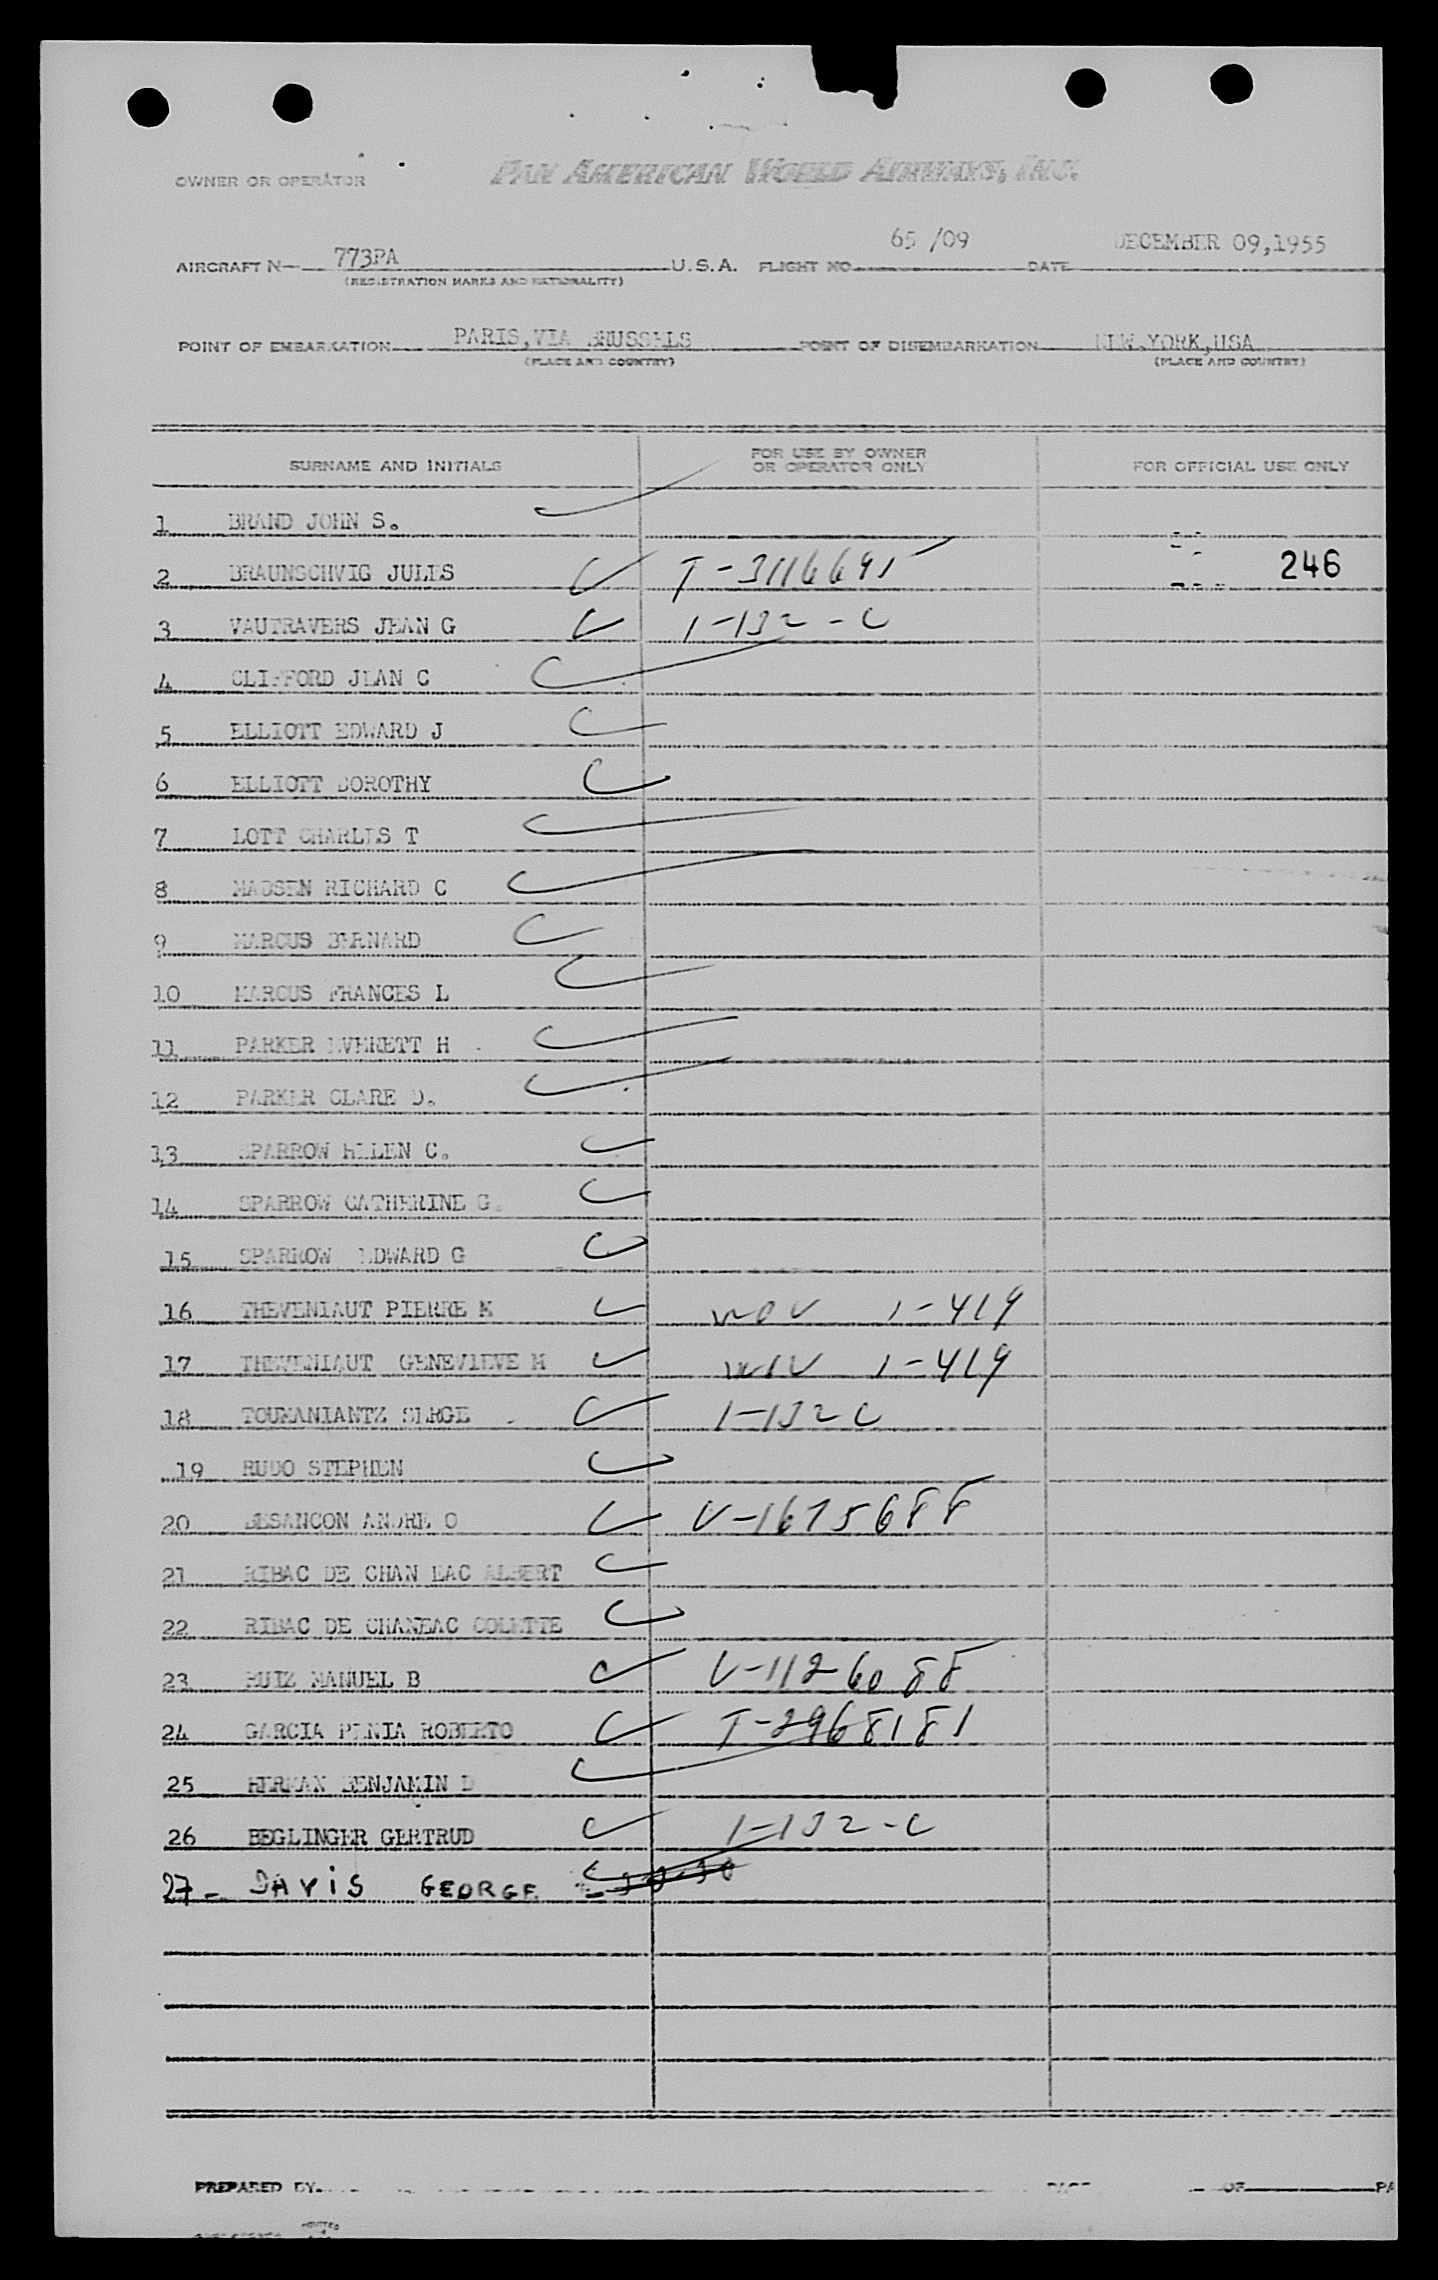 OWNER OR OPERATOR PAN AMERICAN WORLD AIRWAYS, INC.
AIRCRAFT N 773PA U.S.A. FLIGHT NO 65 /09 DATE DECEMBER 09,1955
(REGISTRATION MARKS AND NATIONALITY)
POINT OF EMBARKATION PARIS,VIA BRUSSELS POINT OF DISEMBARKATION NEW.YORK,USA
(PLACE AND COUNTRY) (PLACE AND COUNTRY)
SURNAME AND INITIALS FOR USE BY OWNER OR OPERATOR ONLY FOR OFFICIAL USE ONLY
1 BRAND JOHN S.
2 BRAUNSCHVIG JULES T-3116691 246
3 VAUTRAVERS JEAN G 1-132-C
4 CLIFFORD JEAN C
5 ELLIOTT EDWARD J
6 ELLIOTT DOROTHY
7 LOTT CHARLES T
8 MADSEN RICHARD C
9 MARCUS BERNARD
10 MARCUS FRANCES L
11 PARKER EVERETT H
12 PARKER CLARE D.
13 SPARROW HELEN C.
14 SPARROW CATHERINE G.
15 SPARROW EDWARD G
16 THEVENIAUT PIERRE M 1-419
17 THEVENIAUT GENEVIEVE M 1-419
18 TOUMANIANTZ SERGE 1-132 C
19 RUDO STEPHEN
20 BESANCON ANDRE O V-1675688
21 RIBAC DE CHAN EAC ALBERT
22 RIBAC DE CHANEAC COLETTE
23 RUIZ MANUEL B V-1126088
24 GARCIA PENIA ROBERTO T-2968181
25 HERMAN BENJAMIN D
26 BEGLINGER GERTRUD 1-132-C
27- DAVIS GEORGE
PREPARED BY PAGE OF PA